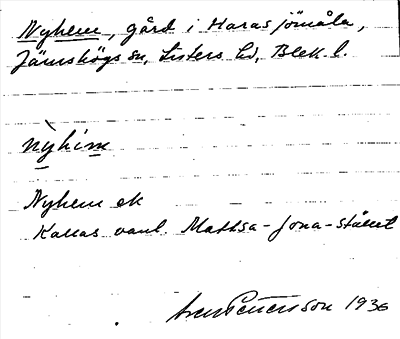 Nyhem, gård i Harasjömåla,
Jämshögs sn, Listers hd, Blek. l.
nyhim
Nyhem ek
Kallas vanl. Mattsa-Jona-stället
Sven Petersson 1936